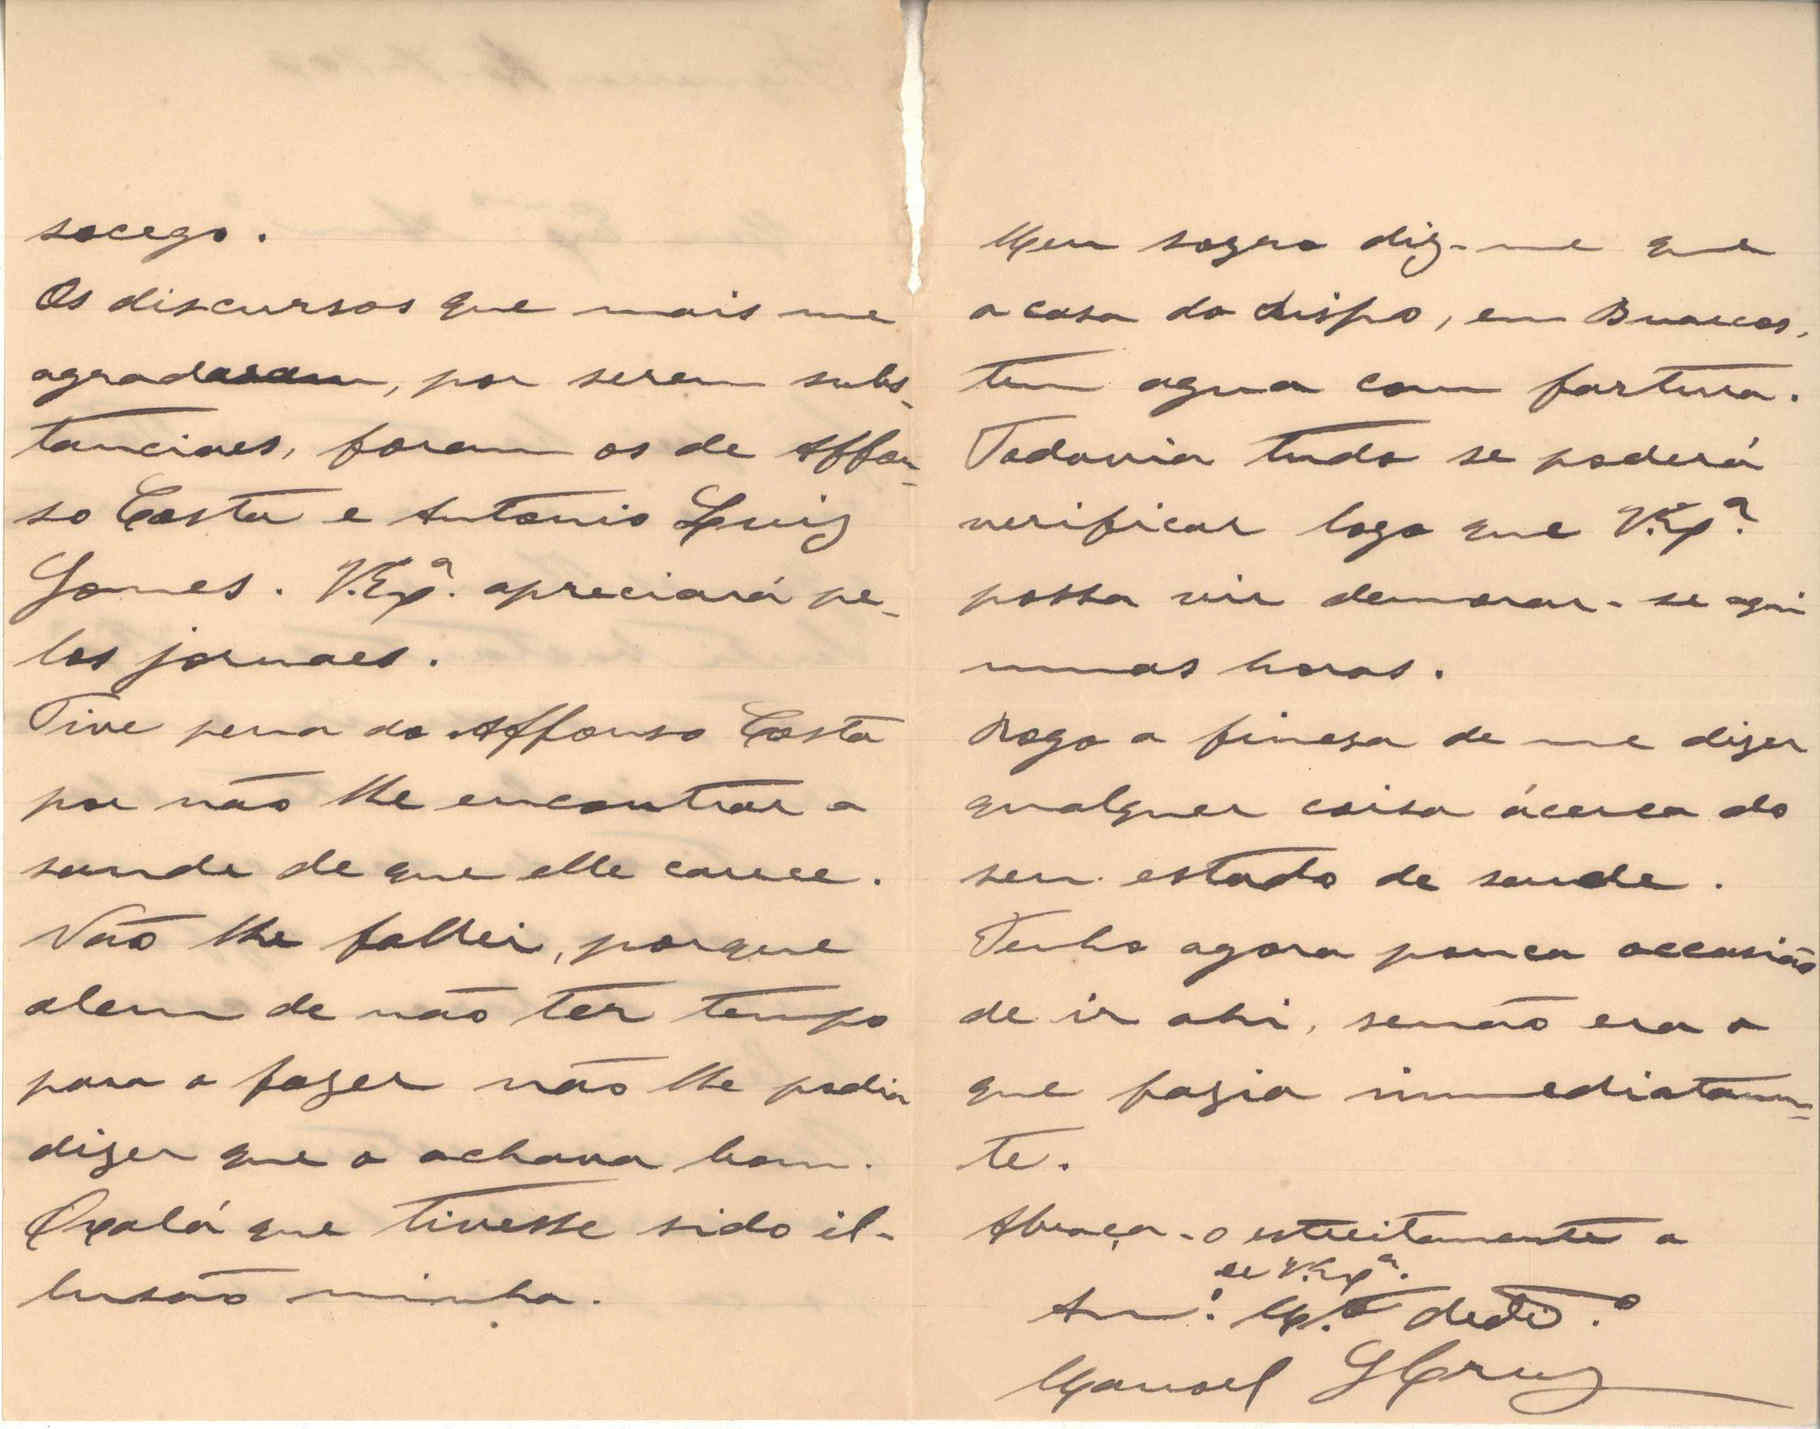 socego.
Os discursos que mais me
agradaram, por serem subs-
tanciaes, foram os de Affon-
so Costa e Antonio Luiz
Gomes. V. Exª. apreciará pe-
los jornaes.
Tive pena do Affonso Costa
por não lhe encontrar a
saude de que elle carece.
Não lhe fallei, porque
alem de não ter tempo
para o fazer não lhe podia
dizer que o achava bom.
Oxalá que tivesse sido il-
lusão minha.
Meu sogro diz-me que
a casa do Bispo, em Buarcos,
tem agua com fartura.
Todavia tudo se poderá
verificar logo que V. Exª.
possa vir demorar-se aqui
umas horas.
Rogo a finesa de me dizer
qualquer coisa ácerca do
seu estado de saude.
Tenho agora pouca occasião
de ir ahi, senão era o
que fazia immediatamen-
te.
Abraça-o estreitamente o
de V. Exª.
Amº. Mto dedo.
Manoel G Cruz